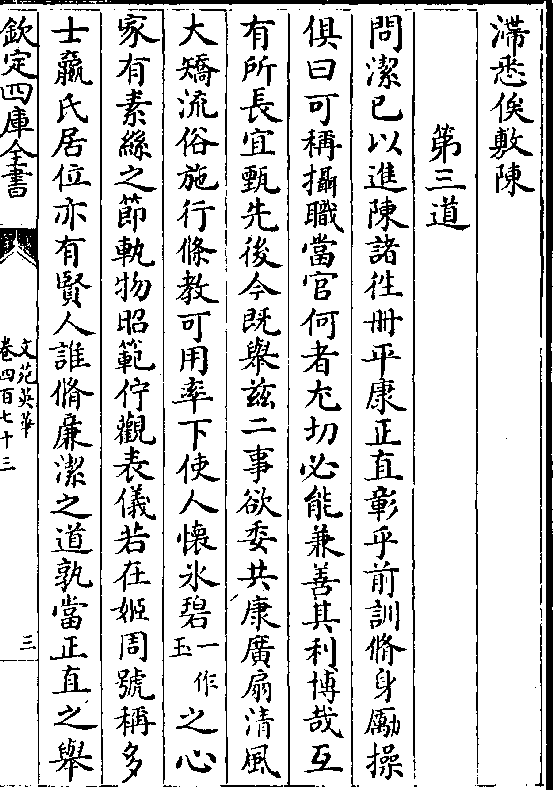 滯悉俟敷陳
第三道
問潔已以進陳諸徃冊平康正直彰乎前訓脩身勵操
俱曰可稱攝職當官何者尤切必能兼善其利博哉互
有所長宜甄先後今既舉兹二事欲委共康廣扇清風
大矯流俗施行條教可用率下使人懷氷碧一作玉之心
家有素絲之節軌物昭範佇觀表儀若在姬周號稱多
士嬴氏居位亦有賢人誰脩廉潔之道孰當正直之舉
欽定四庫全書
文苑英華
卷四百七十三
三